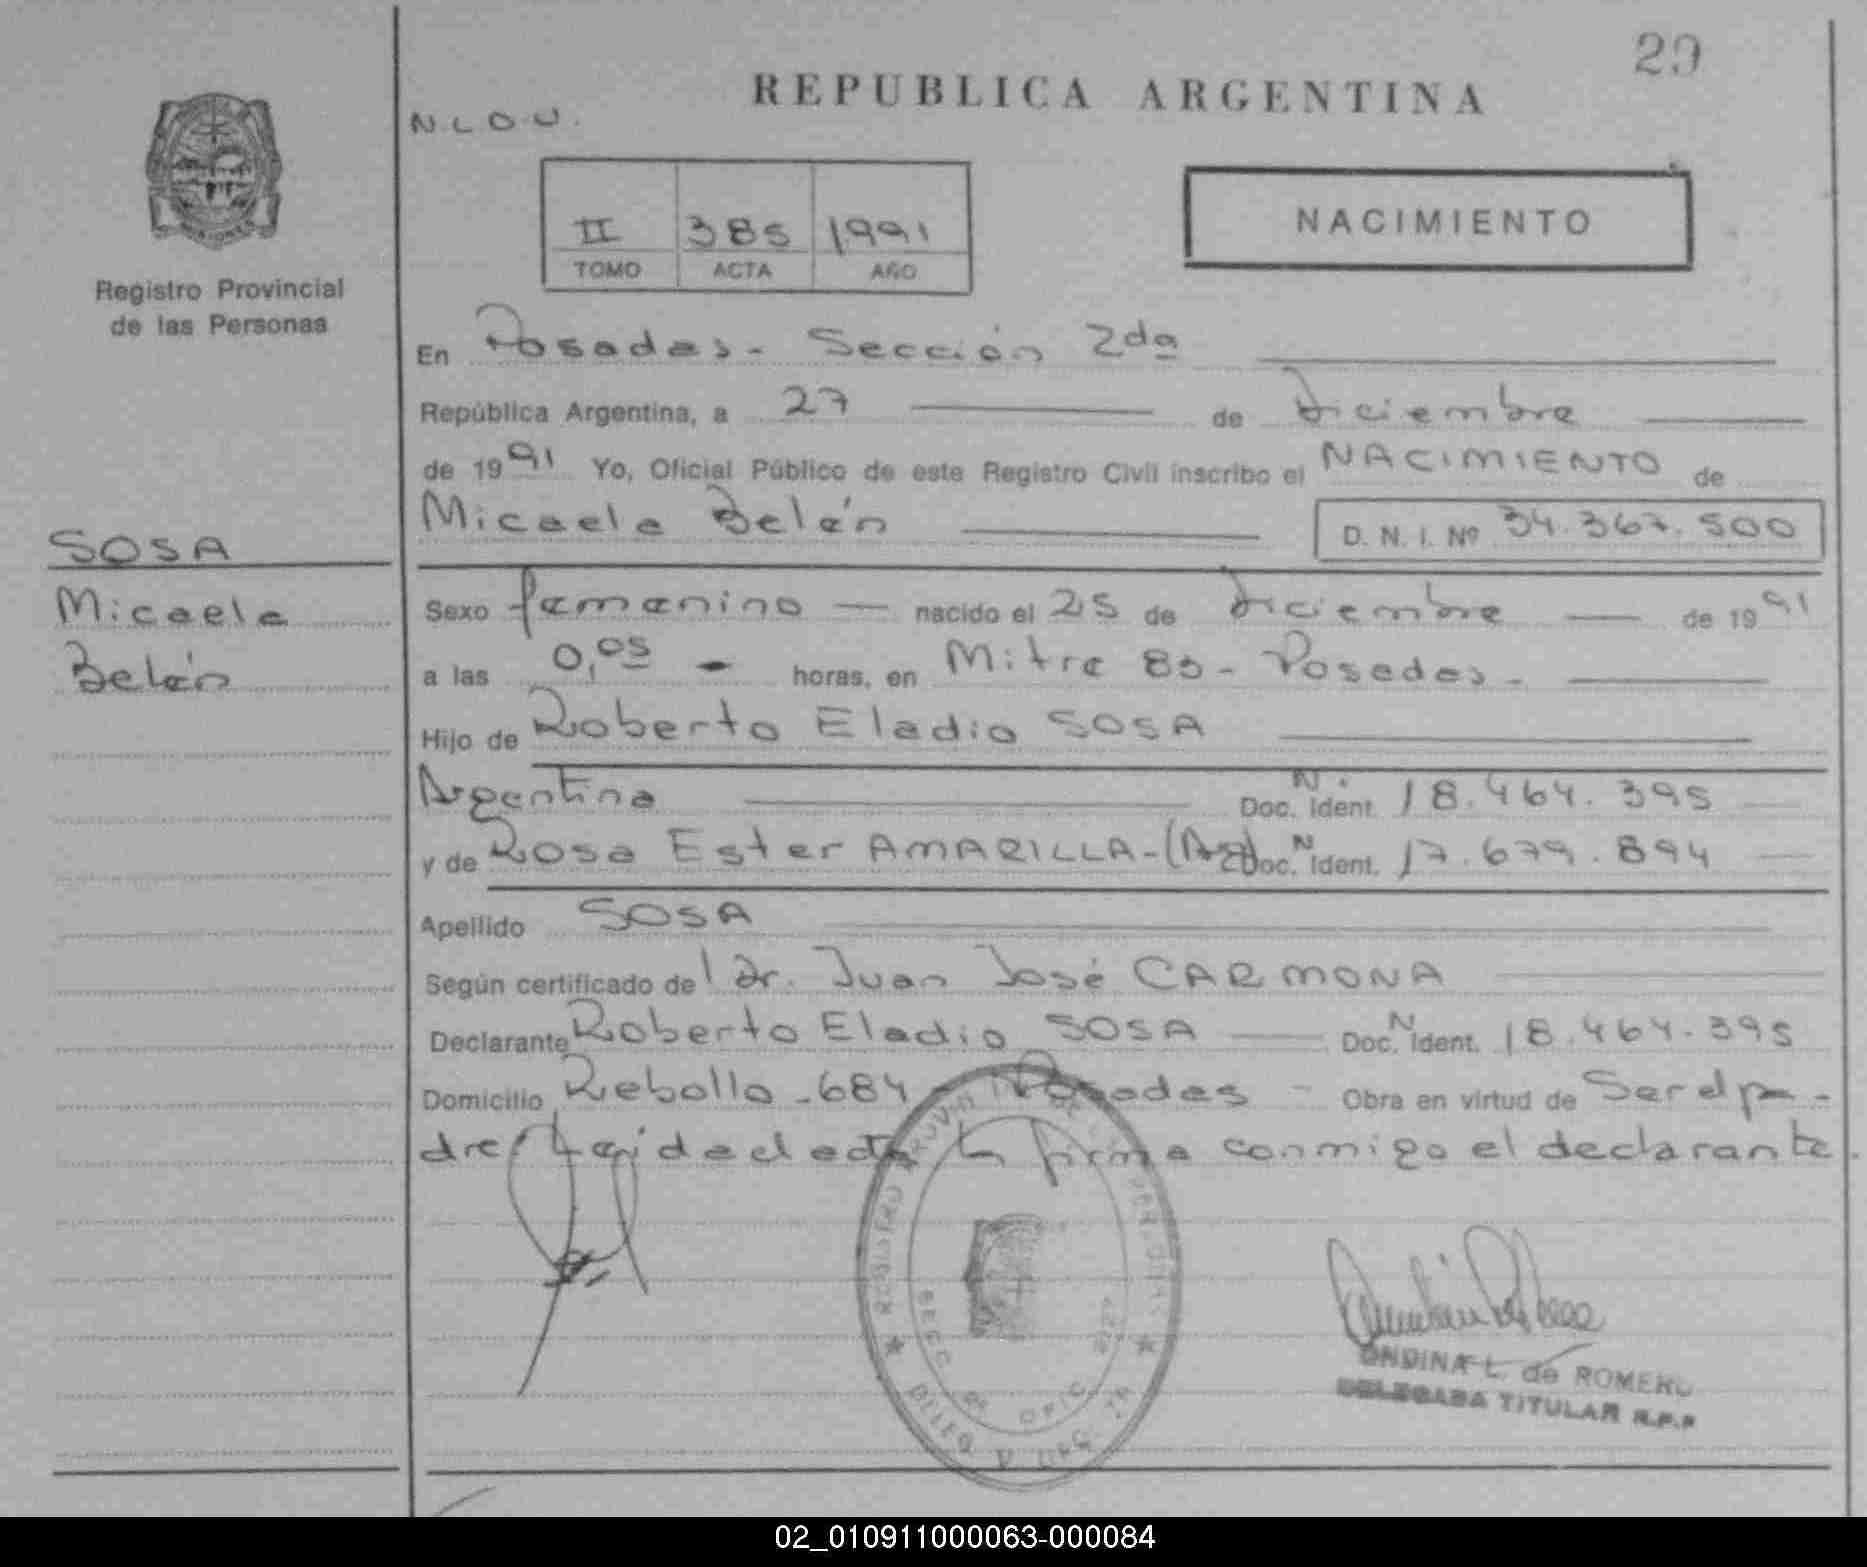 29
REPUBLICA ARGENTINA
N.L.O.U.
II 385 1991
TOMO ACTA AÑO
NACIMIENTO
Registro Provincial
de las Personas
SOSA
Micaela
Belén
En Posadas - Sección 2da
República Argentina, a 27 de Diciembre
de 1991 Yo, Oficial Público de este Registro Civil inscribo el NACIMIENTO de
Micaela Belén D. N. I. Nº 34.367.500
Sexo femenino — nacido el 25 de Diciembre — de 1991
a las 0,05 - horas, en Mitre 83 - Posadas -
Hijo de Roberto Eladio SOSA
Argentina Doc. N. Ident. 18.464.395
y de Rosa Ester AMARILLA - (Arg) Doc. N Ident. 17.679.894
Apellido SOSA
Según certificado de l Dr. Juan José CARMONA
Declarante Roberto Eladio SOSA — Doc. N Ident. 18.464.395
Domicilio Rebollo - 684 - Posadas - Obra en virtud de Ser el pa-
dre. Leída el acta la firma conmigo el declarante.
REGISTRO PROVIN DE LAS PERSONAS
ONDINA L. de ROMERO
DELEGADA TITULAR R.P.P
02_010911000063-000084